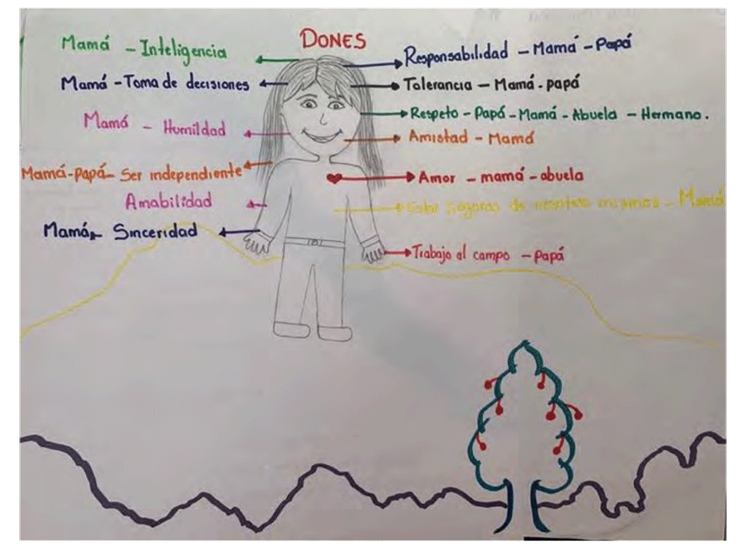 DONES
Mamá - Inteligencia
Mamá - Toma de decisiones
Mamá - Humildad
Mamá-Papá- Ser independiente
Amabilidad
Mamá, Sinceridad
Responsabilidad - Mamá - Papá
Tolerancia - Mamá - papá
Respeto - Papá - Mamá - Abuela - Hermano.
Amistad - Mamá
Amor - mamá - abuela
seguras de - Mamá
Trabajo al campo - Papá